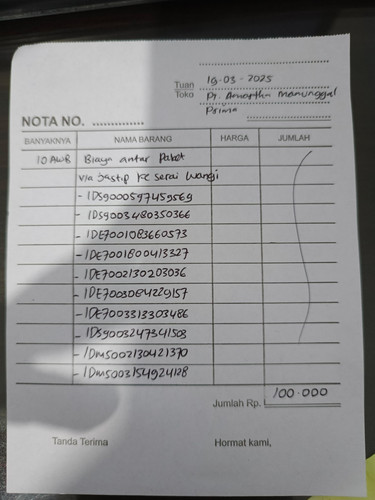 19-03-2025
Tuan
Toko
PT. Amartha Manunggal
Prima
NOTA NO. ..............
BANYAKNYA NAMA BARANG HARGA JUMLAH
10 AWB Biaya antar Paket
via Jastip ke serai wangi
- IDS9000597459569
- IDS9003480350366
- IDE7001083660573
- IDE7001800413327
- IDE7002130203036
- IDE7003084229157
- IDE7003313303486
- IDS9003247341503
- IDM5002130421370
- IDM5003154924128
Jumlah Rp. 100.000
Tanda Terima Hormat kami,